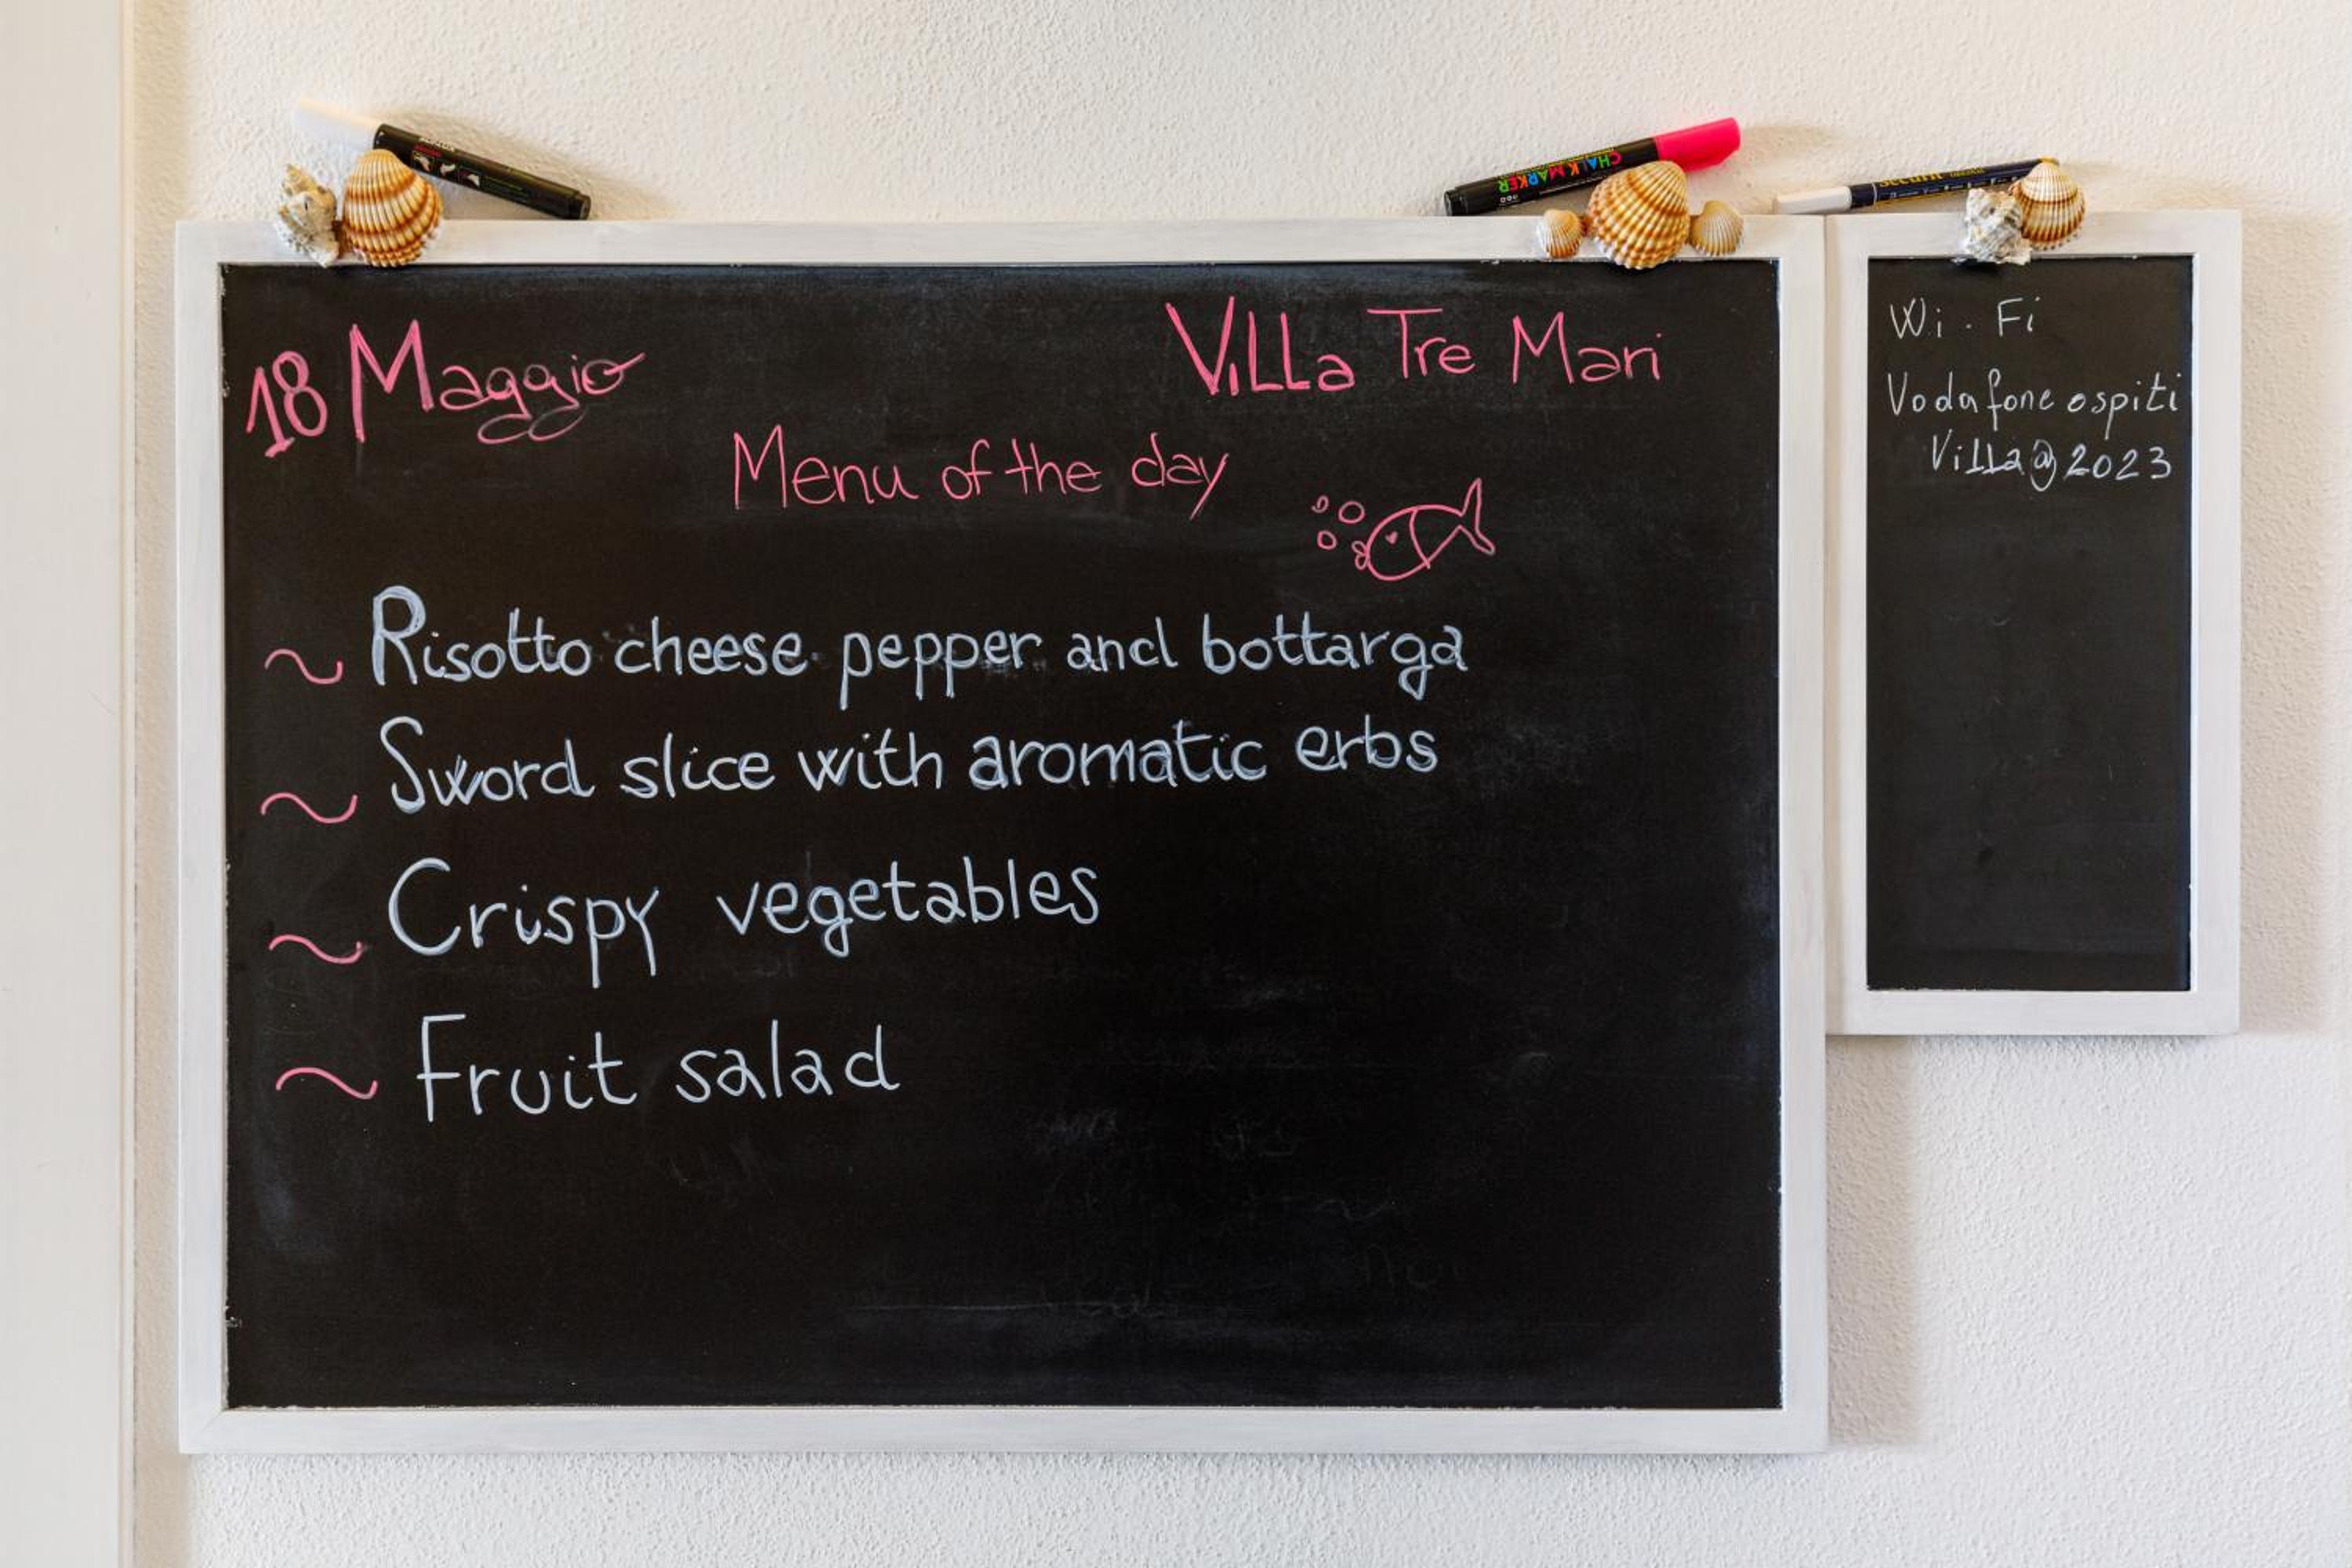 18 Maggio
Villa Tre Mari
Menu of the day
~ Risotto cheese pepper and bottarga
~ Sword slice with aromatic erbs
~ Crispy vegetables
~ Fruit salad
Wi-Fi
Vodafone ospiti
Villa@2023
CHALK MARKER